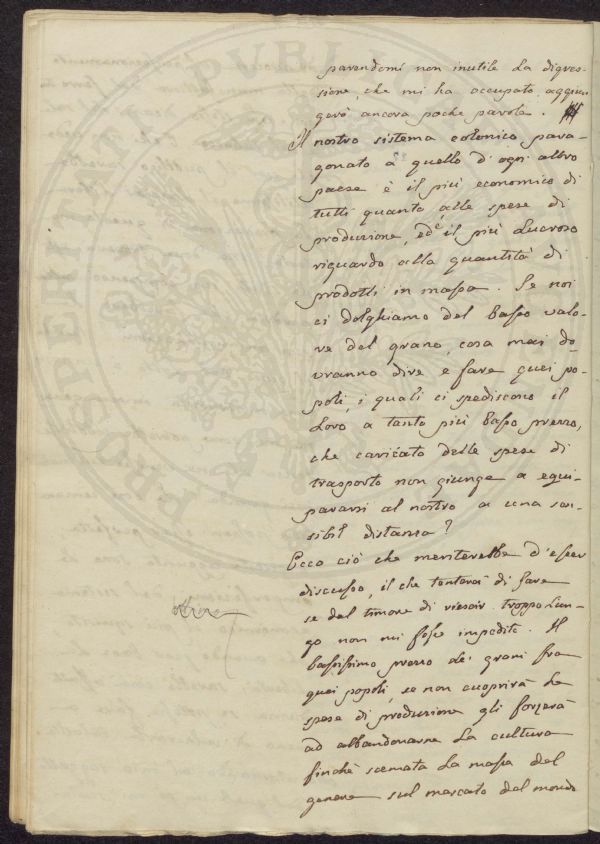 parendomi non inutile la digres-
sione, che mi ha occupato, aggiun
gerò ancora poche parole.
Il nostro sistema colonico para-
gonato a quello d'ogni altro
paese è il più economico di
tutti quanto alle spese di
produzione, ed è il più lucroso
riguardo alla quantità di
prodotti in massa. Se noi
ci dolghiamo del basso valo-
re del grano, cosa mai do-
vranno dire e fare quei po-
poli, i quali ci spediscono il
loro a tanto più basso prezzo,
che caricato delle spese di
trasporto non giunge a equi-
pararsi al nostro a una sen-
sibil distanza?
Ecco ciò che meriterebbe d'esser
discusso, il che tenterei di fare
se dal timore di riescir troppo lun-
go non mi fosse impedito. Il
bassissimo prezzo dei grani fra
quei popoli, se non cuoprirà le
spese di produzione gli forzerà
ad abbandonarne la cultura
finchè scemata la massa del
genere sul mercato del mondo
PROSPERITATI PUBLI